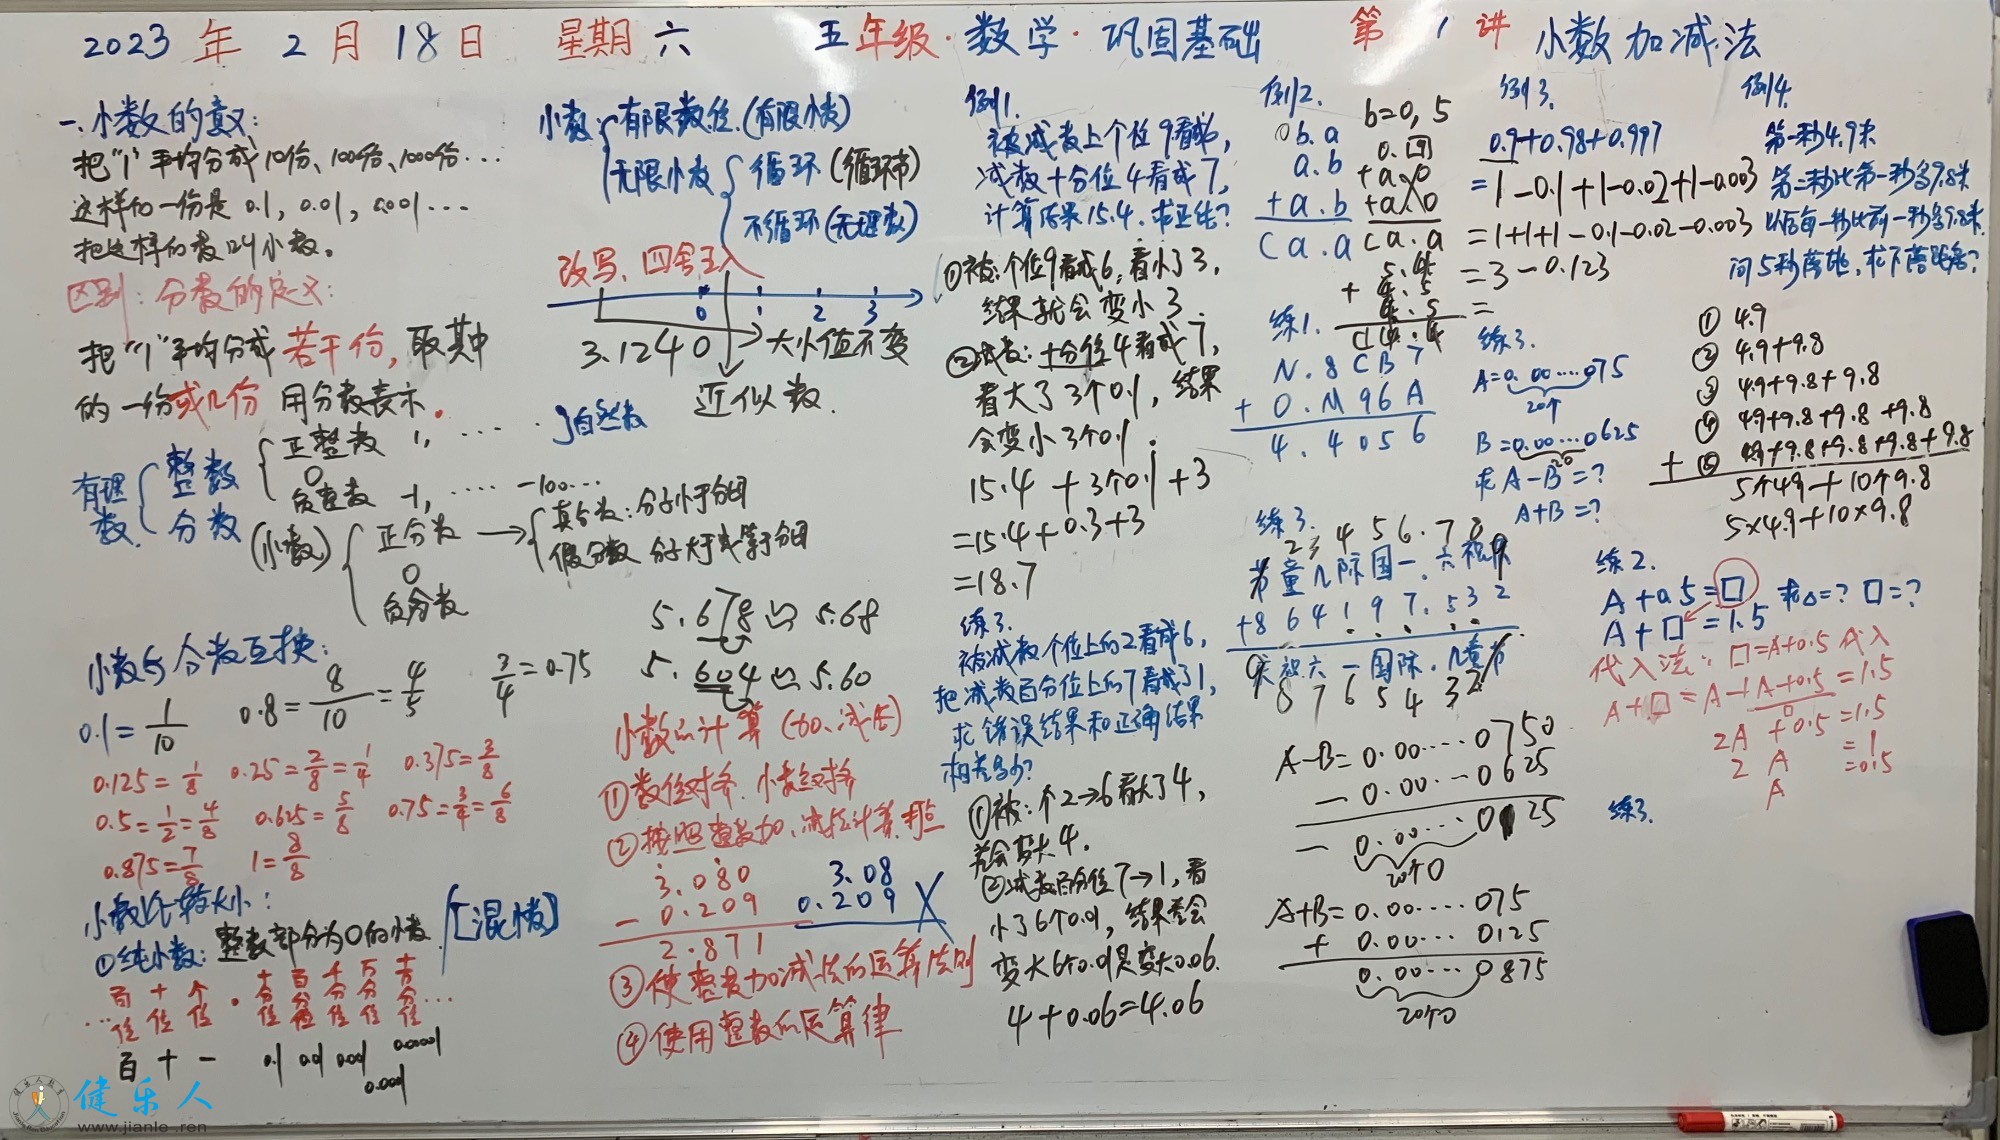 2023年2月18日 星期六 五年级·数学·巩固基础 第1讲 小数加减法
一.小数的意义:
把"1"平均分成10份、100份、1000份...
这样的一份是 0.1, 0.01, 0.001...
把这样的数叫小数。
区别: 分数的定义:
把"1"平均分成若干份,取其中
的一份或几份 用分数表示。
有理数
整数
正整数 1, ...... 自然数
0
负整数 -1, .... -100...
分数
(小数)
正分数
真分数:分子小于分母
假分数 分子大于或等于分母
0
负分数
小数与分数互换:
0.1=1/10 0.8=8/10=4/5 3/4=0.75
0.125=1/8 0.25=2/8=1/4 0.375=3/8
0.5=1/2=4/8 0.625=5/8 0.75=3/4=6/8
0.875=7/8 1=8/8
小数比较大小:
①纯小数:整数部分为0的小数 [混小数]
...百位 十位 个位 . 十分位 百分位 千分位 万分位 十万分位...
百 十 一 0.1 0.01 0.001 0.0001 0.00001
小数
有限数位.(有限小数)
无限小数
循环(循环节)
不循环(无理数)
改写、四舍五入
0 1 2 3
3.1240 大小值不变
近似数.
5.678≌5.68
5.604≌5.60
小数的计算(加、减法)
①数位对齐.小数点对齐
②按照整数加、减法计算.
3.080
- 0.209
2.871
3.08
0.209 X
③使整数加减法的运算法则
④使用整数的运算律
例1.
被减数上个位9看成6,
减数十分位4看成7,
计算结果15.4.求正结?
①被:个位9看成6,看小了3,
结果就会变小3.
②减数:十分位4看成7,
看大了3个0.1,结果
会变小3个0.1.
15.4+3个0.1+3
=15.4+0.3+3
=18.7
练3.
被减数个位上的2看成6,
把减数百分位上的7看成了1,
求错误结果和正确结果
相差多少?
①被:个2→6看大了4,
差会变大4.
②减数百分位7→1,看
小了6个0.01,结果差会
变大6个0.01是变大0.06.
4+0.06=4.06
例2.
0b.a
a.b
+a.b
ca.a
b=0,5
0.四
+a.0
+a.0
ca.a
5.4
+ 4.5
4.5
14.4
练1.
N.8CB7
+ 0.M96A
4.4056
练3.
2 3 4 5 6.7 8 9
节童儿际国一.六祝庆
+8 6 4 1 9 7.5 3 2
庆祝六一国际.儿童节
9 8 7 6 5 4 3 2 1
A-B=0.00....0750
- 0.00...0625
0.00...0125
20个0
A+B=0.00....075
+ 0.00...0125
0.00...0875
20个0
例3.
0.9+0.98+0.997
=1-0.1+1-0.02+1-0.003
=1+1+1-0.1-0.02-0.003
=3-0.123
=
练3.
A=0.00....075
20个
B=0.00...0625
20
求A-B=?
A+B=?
例4.
第一秒4.9米
第二秒比第一秒多9.8米
以后每一秒比前一秒多9.8米.
问5秒落地,求下落距离?
① 4.9
② 4.9+9.8
③ 4.9+9.8+9.8
④ 4.9+9.8+9.8+9.8
+ ⑤ 4.9+9.8+9.8+9.8+9.8
5个4.9+10个9.8
5×4.9+10×9.8
练2.
A+0.5=□ 求△=? □=?
A+□=1.5
代入法: □=A+0.5 代入
A+□=A+A+0.5=1.5
2A+0.5=1.5
2A=1
A=0.5
练3.
健乐人
www.jianle.ren